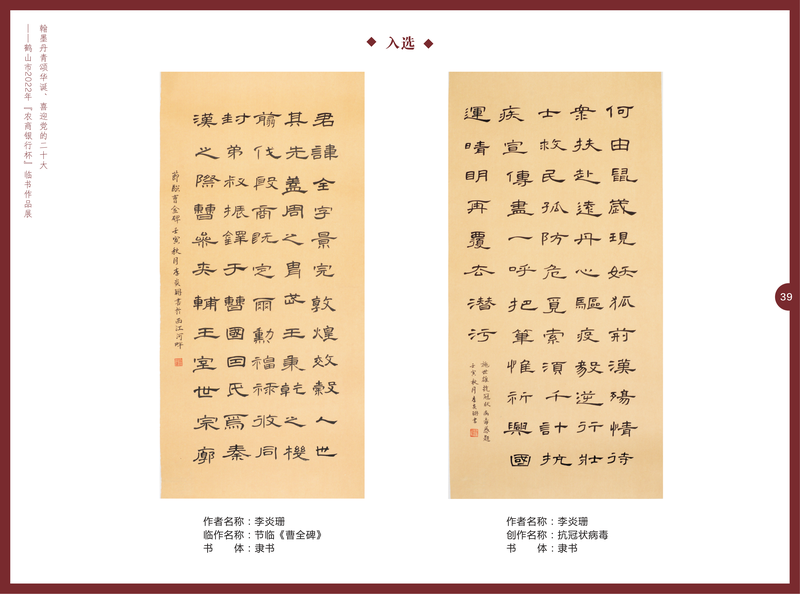 翰墨丹青颂华诞、喜迎党的二十大
——鹤山市2022年『农商银行杯』临书作品展
入选
君諱全字景完敦煌效穀人也
其先蓋周之胄武王秉乾之機
翦伐殷商既定爾勳福祿攸同
封弟叔振鐸于曹國因氏焉秦
漢之際曹參夾輔王室世宗廓
節臨曹全碑壬寅秋月李炎珊書於西江河畔
何由鼠歲現妖狐荊漢殤情待
眾扶赴遠丹心驅疫毅逆行壯
士救民孤防危覓索須千計抗
疾宣傳盡一呼把筆惟祈興國
運晴明再覆去潛污
壬寅秋月李炎珊書
作者名称：李炎珊
临作名称：节临《曹全碑》
书　体：隶书
作者名称：李炎珊
创作名称：抗冠状病毒
书　体：隶书
39